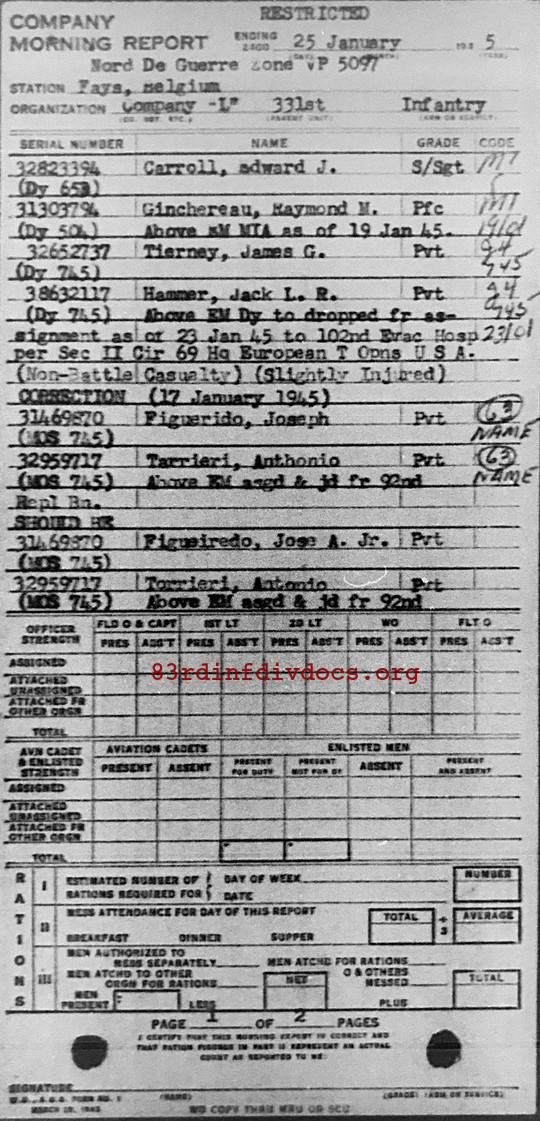 RESTRICTED
COMPANY
MORNING REPORT ENDING 2400 25 January 194 5
Nord De Guerre Zone VP 5097
STATION Fays, Belgium
ORGANIZATION Company -L" 331st Infantry
SERIAL NUMBER NAME GRADE CODE
32823394 Carroll, Edward J. S/Sgt MT
(Dy 653)
31303794 Ginchereau, Raymond M. Pfc MT
(Dy 504) Above EM MIA as of 19 Jan 45. 19/01
32652737 Tierney, James G. Pvt
(Dy 745) 745
38632117 Hammer, Jack L. R. Pvt
(Dy 745) Above EM Dy to dropped fr as- 745
signment as of 23 Jan 45 to 102nd Evac Hosp 23/01
per Sec II Cir 69 Hq European T Opns U S A.
(Non-Battle Casualty) (Slightly Injured)
CORRECTION (17 January 1945)
31469870 Figuerido, Joseph Pvt 63
(MOS 745) NAME
32959717 Tarrieri, Anthonio Pvt 63
(MOS 745) Above EM asgd & jd fr 92nd NAME
Repl Bn.
SHOULD BE
31469870 Figueiredo, Jose A. Jr. Pvt
(MOS 745)
32959717 Torrieri, Antonio Pvt
(MOS 745) Above EM asgd & jd fr 92nd
OFFICER STRENGTH FLD O & CAPT 1ST LT 2D LT WO FLT O
PRES ABS'T PRES ABS'T PRES ABS'T PRES ABS'T PRES ABS'T
ASSIGNED
83rdinfdivdocs.org
ATTACHED UNASSIGNED
ATTACHED FR OTHER ORGN
TOTAL
AVN CADET & ENLISTED STRENGTH AVIATION CADETS ENLISTED MEN
PRESENT ABSENT PRESENT FOR DUTY PRESENT NOT FOR DY ABSENT PRESENT AND ABSENT
ASSIGNED
ATTACHED UNASSIGNED
ATTACHED FR OTHER ORGN
TOTAL
RATIONS
I ESTIMATED NUMBER OF RATIONS REQUIRED FOR DAY OF WEEK DATE NUMBER
II MESS ATTENDANCE FOR DAY OF THIS REPORT TOTAL ÷ 3 AVERAGE
BREAKFAST DINNER SUPPER
III MEN AUTHORIZED TO MESS SEPARATELY MEN ATCHD FOR RATIONS
MEN ATCHD TO OTHER ORGN FOR RATIONS NET O & OTHERS MESSED TOTAL
MEN PRESENT LESS PLUS
PAGE 1 OF 2 PAGES
I CERTIFY THAT THIS MORNING REPORT IS CORRECT AND
THAT RATION FIGURES IN PART III REPRESENT AN ACTUAL
COUNT AS REPORTED TO ME:
SIGNATURE
W.D., A.G.O. FORM NO. 1 (NAME) (GRADE) (ARM OR SERVICE)